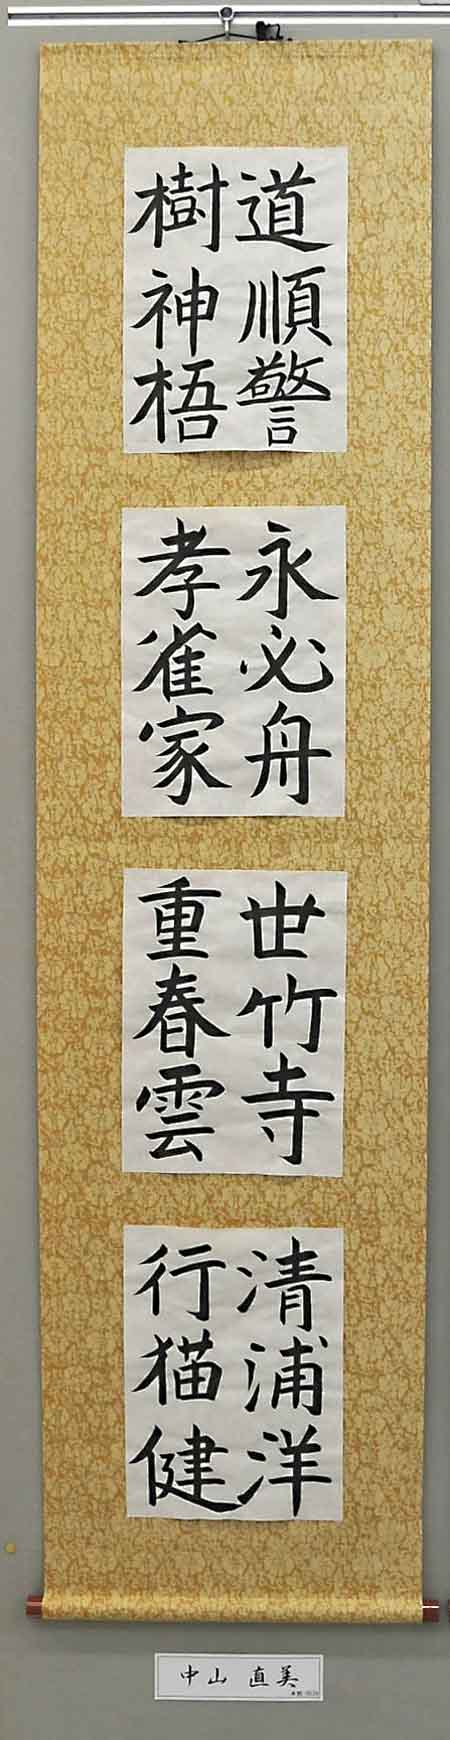 道順警
樹神梧
永必舟
孝雀家
世竹寺
重春雲
清浦洋
行猫健
中山 直美